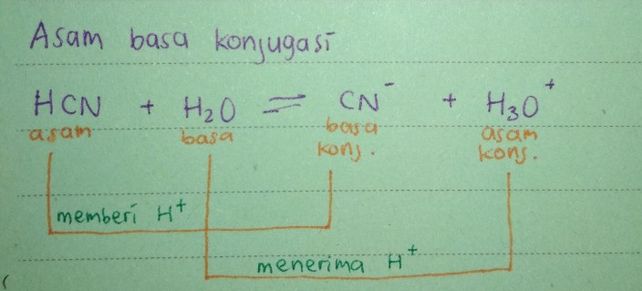 Asam basa konjugasi
HCN + H₂O ⇌ CN⁻ + H₃O⁺
asam basa basa konj. asam konj.
memberi H⁺
menerima H⁺